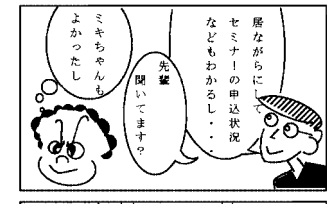 居ながらにして
セミナーの申込状況
などもわかるし・・・
先輩
聞いてます?
ミキちゃんも
よかったし